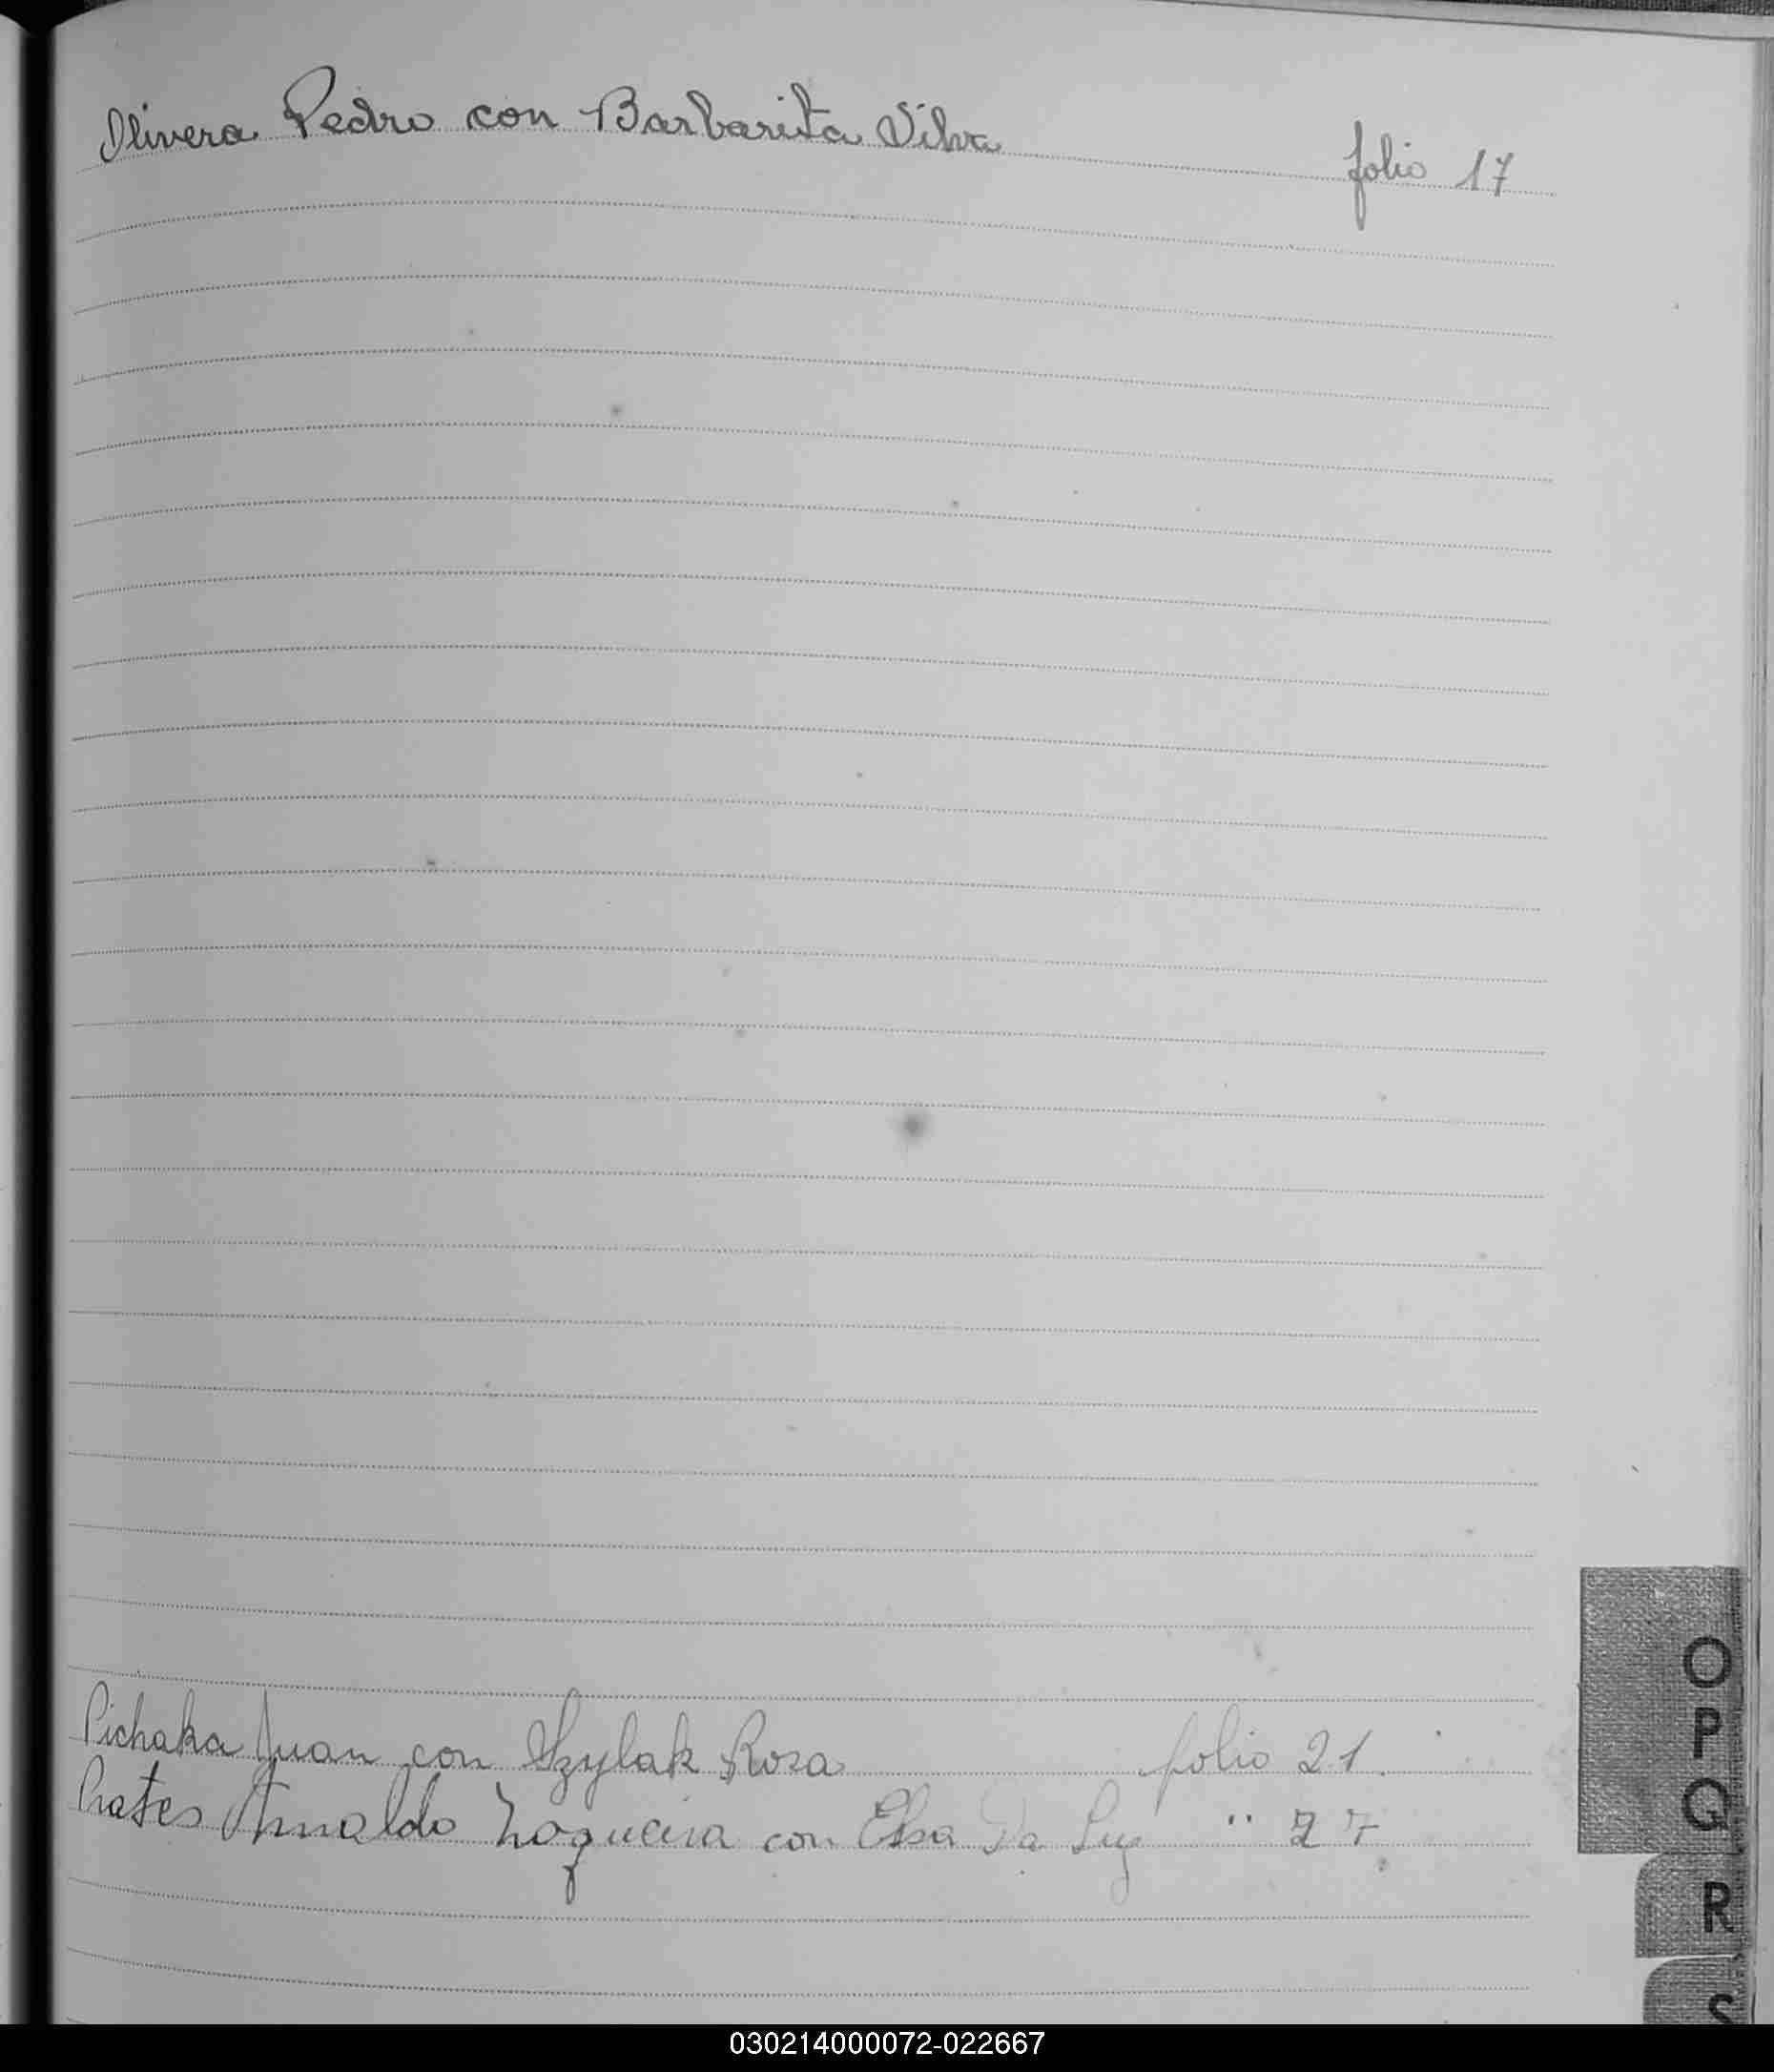 Olivera Pedro con Barbarita Silva folio 17
Pichaka Juan con Szylak Rosa folio 21.
Prates Arnaldo Noqueira con Elsa Da Luz " 27
O
P
Q
R
S
030214000072-022667